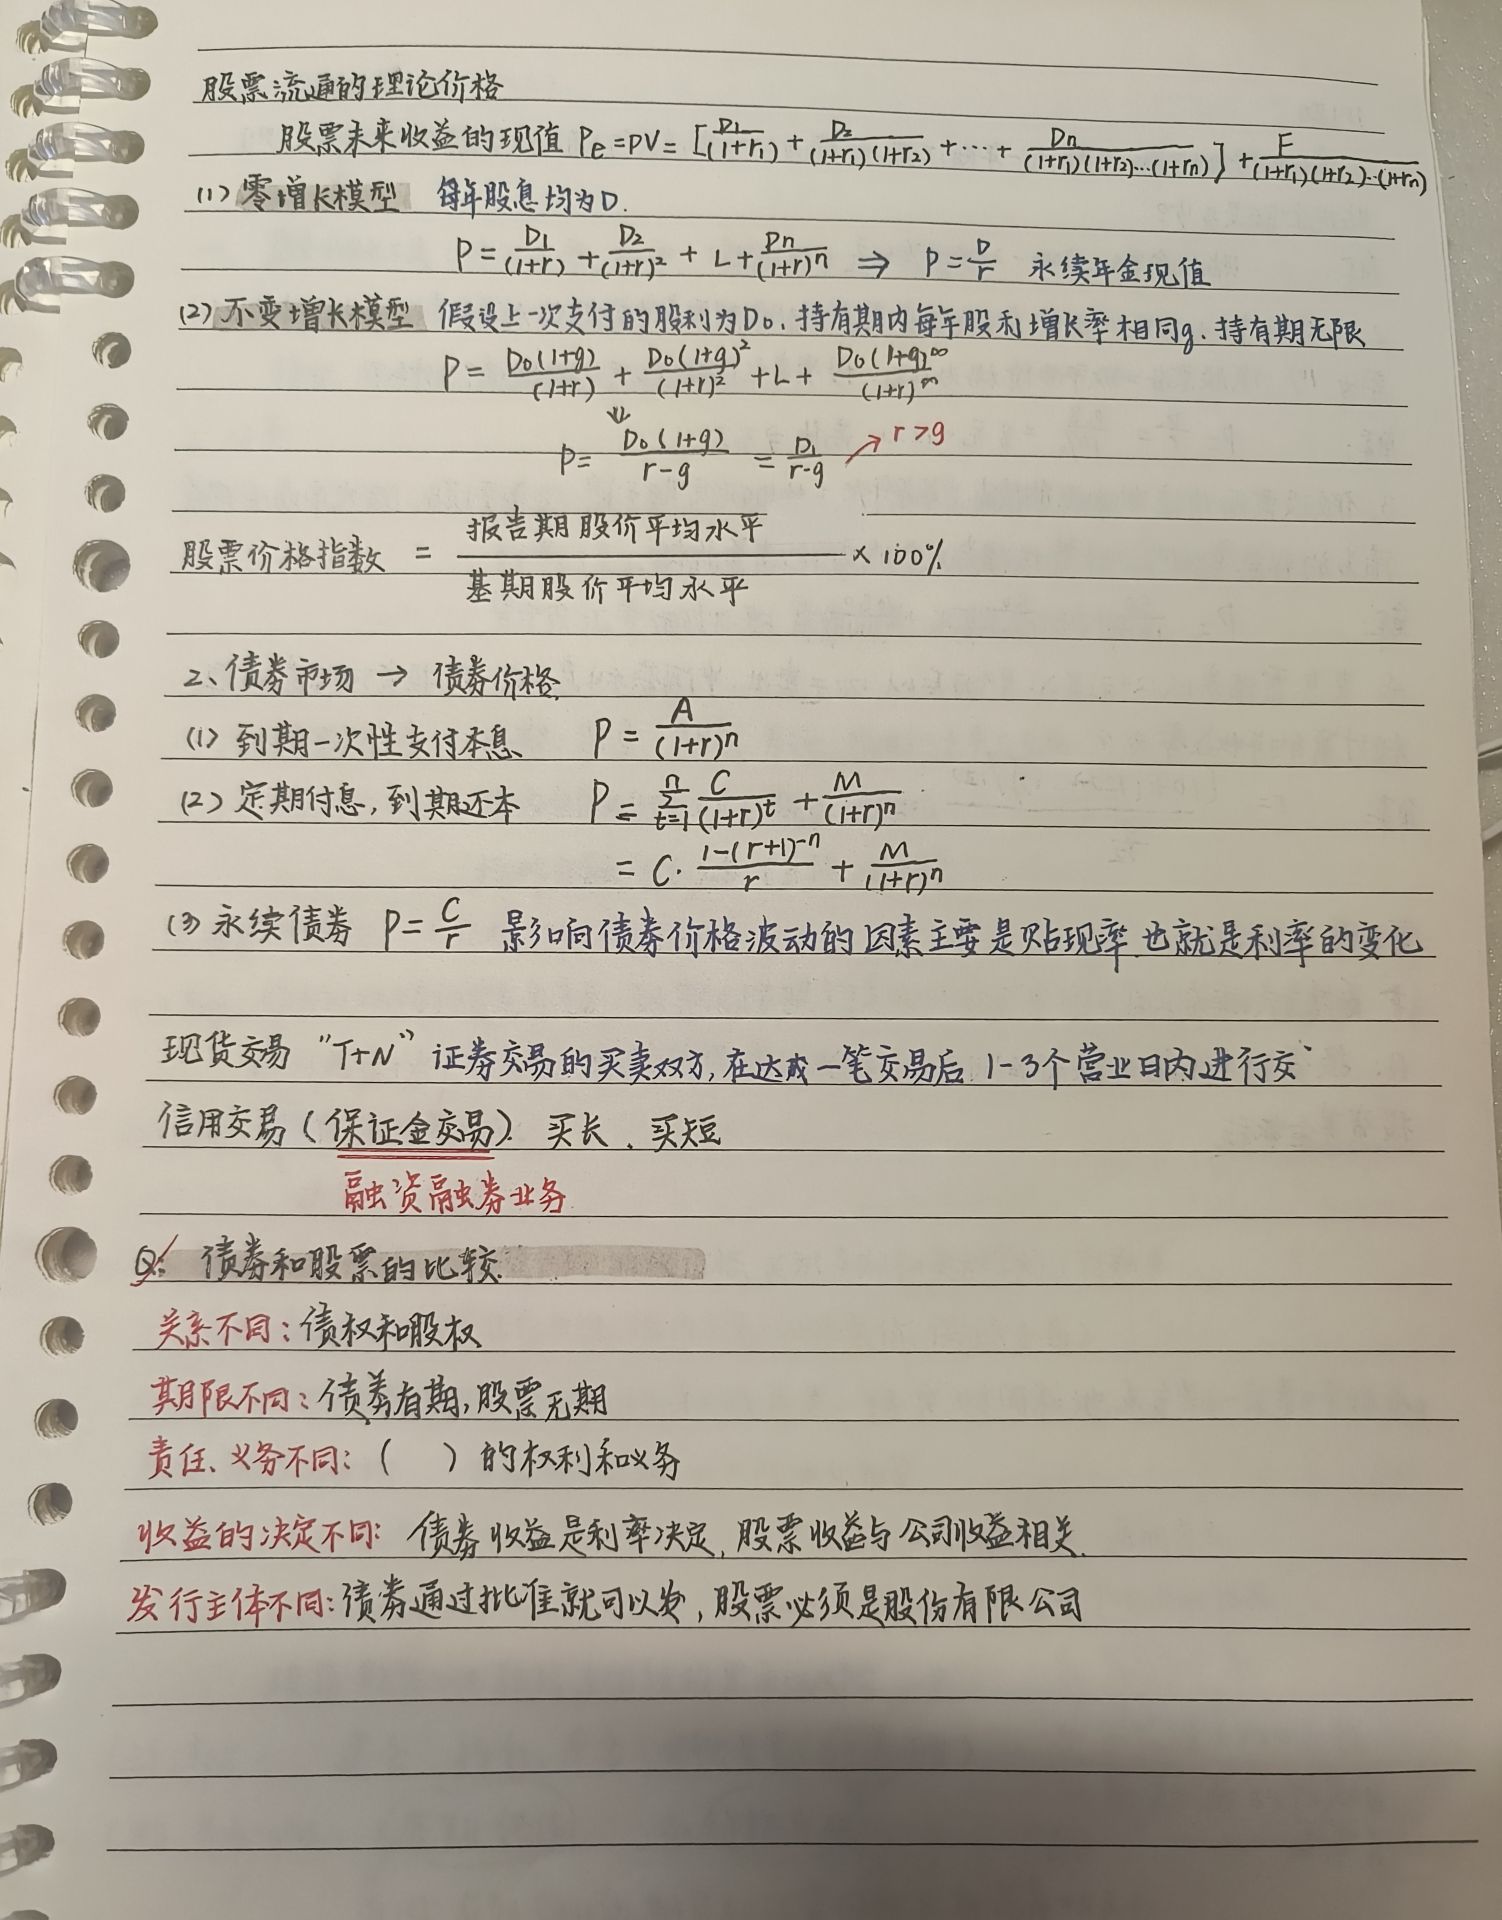 股票流通的理论价格
股票未来收益的现值 Pe=PV=[D1/(1+r1) + D2/(1+r1)(1+r2) +…+ Dn/(1+r1)(1+r2)…(1+rn)] + F/(1+r1)(1+r2)…(1+rn)
(1) 零增长模型 每年股息均为D.
P = D1/(1+r) + D2/(1+r)² + L + Dn/(1+r)ⁿ ⇒ P = D/r 永续年金现值
(2) 不变增长模型 假设上一次支付的股利为D0, 持有期内每年股利增长率相同g, 持有期无限
P = D0(1+g)/(1+r) + D0(1+g)²/(1+r)² + L + D0(1+g)^∞/(1+r)^∞
⇓
P = D0(1+g)/r-g = D1/r-g ↗ r>g
股票价格指数 = 报告期股价平均水平/基期股价平均水平 × 100%
2、债券市场 → 债券价格
(1) 到期一次性支付本息 P = A/(1+r)ⁿ
(2) 定期付息, 到期还本 P = Σ(t=1→n) C/(1+r)^t + M/(1+r)ⁿ
= C· 1-(r+1)^-n/r + M/(1+r)ⁿ
(3) 永续债券 P = C/r 影响债券价格波动的因素主要是贴现率, 也就是利率的变化
现货交易 “T+N” 证券交易的买卖双方, 在达成一笔交易后 1-3个营业日内进行交
信用交易 (保证金交易) 买长、买短
融资融券业务
Q: 债券和股票的比较
关系不同: 债权和股权
期限不同: 债券有期, 股票无期
责任、义务不同: ( ) 的权利和义务
收益的决定不同: 债券收益是利率决定, 股票收益与公司收益相关.
发行主体不同: 债券通过批准就可以发, 股票必须是股份有限公司